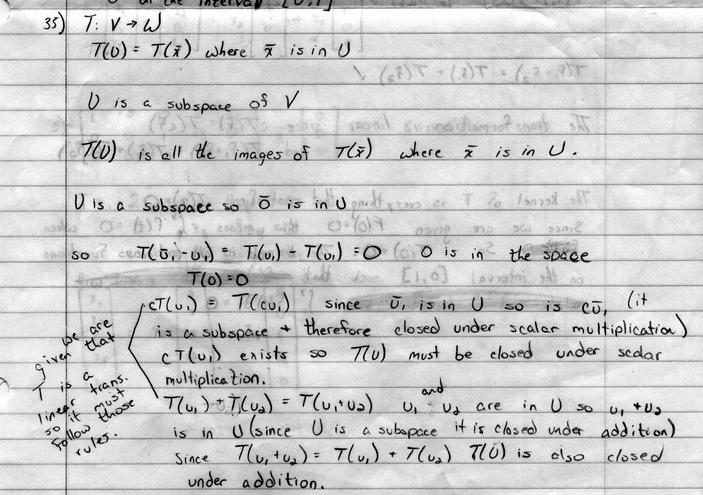 on the interval [0,1]
35) T: V → W
T(U) = T(x̄) where x̄ is in U
U is a subspace of V
T(U) is all the images of T(x̄) where x̄ is in U.
U is a subspace so ō is in U
so T(ū₁-u₁) = T(u₁) - T(u₁) = 0 0 is in the space
T(0) = 0
cT(u₁) = T(cu₁) since ū₁ is in U so is cū₁ (it
is a subspace + therefore closed under scalar multiplication)
cT(u₁) exists so T(U) must be closed under scalar
multiplication.
T(u₁) + T(u₂) = T(u₁+u₂) u₁ and u₂ are in U so u₁ + u₂
is in U (since U is a subspace it is closed under addition)
Since T(u₁+u₂) = T(u₁) + T(u₂) T(U) is also closed
under addition.
we are
given that
T is a
linear trans.
so it must
follow those
rules.